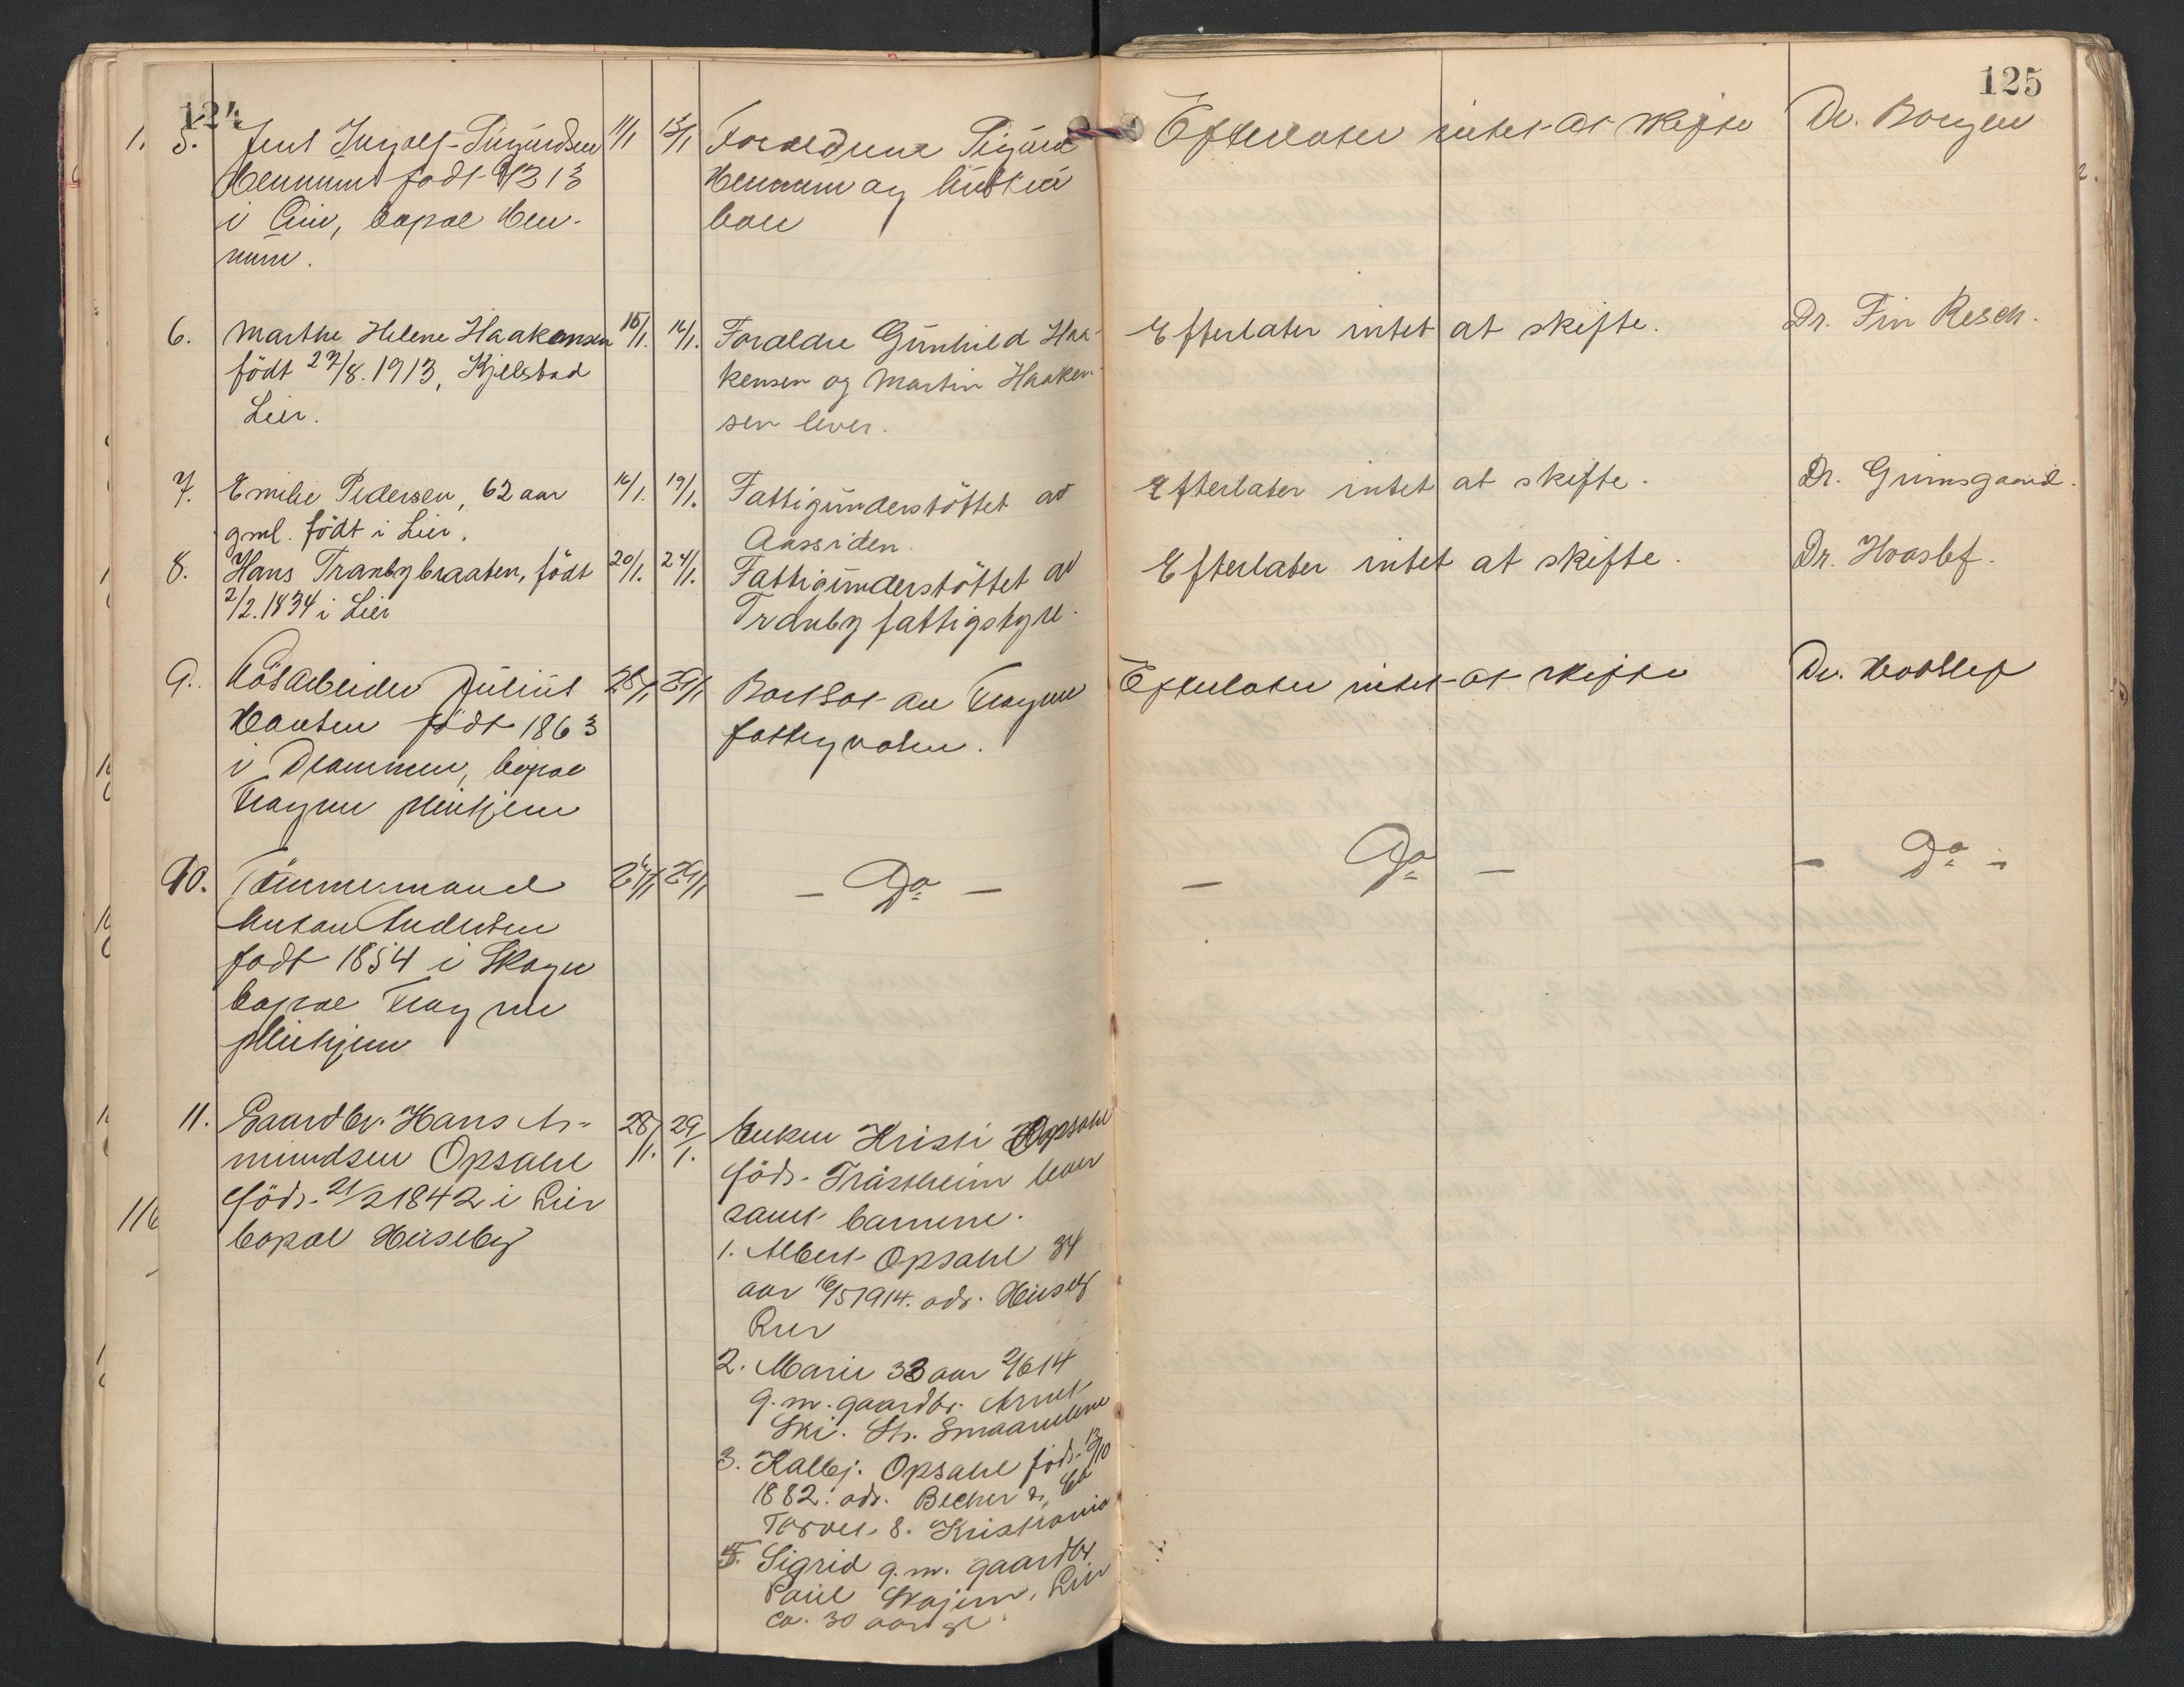 124
125
5. Jens Ingolf Sigurdsen 11/1 13/1 Forældrene Sigurd Efterlater intet at skifte Dr. Borgen
Hennum født 9/3 13 Hennum og hustru
i Lier, bopæl Hen- lever
num.
6. Marthe Helene Haakonsen 15/1. 16/1. Forældre Gunhild Haa- Efterlater intet at skifte. Dr. Fin Resch.
født 27/8. 1913, Kjelstad kensen og Martin Haaken-
Lier. sen lever.
7. Emilie Pedersen, 62 aar 16/1. 19/1. Fattigunderstöttet av Efterlater intet at skifte. Dr. Grimsgaard.
gml. födt i Lier. Aassiden.
8. Hans Tranbybraaten, födt 20/1. 24/1. Fattigunderstöttet av Efterlater intet at skifte. Dr. Hvaslef.
2/2. 1834 i Lier Tranby fattigstyre.
9. Lösarbeider Julius 28/1 29/1 Bortsat av Frogner Efterlater intet at skifte Dr. Hvaslef
Hansen födt 1863 fattigvæsen.
i Drammen, bopæl
Frogner pleiehjem
10. Tömmermand 26/1 29/1 — Do — — Do — — Do —
Anton Andersen
født 1854 i Skoger
bopæl Frogner
pleiehjem
11. Gaardbr. Hans As- 28/1. 29/1. Enken Kristi Opsahl
mundsen Opsahl föd. Tråstheim lever
föd. 21/2 1842 i Lier samt barnene.
bopæl Huseby 1. Albert Opsahl 34
aar 16/5 1914. adr. Huseby
Lier
2. Marie 33 aar 2/6 14
g. m. gaardbr. Arnet
Ski. St. Smaalenene
3. Kallbj. Opsahl föd. 13/10
1882. adr. Becher & Co
Torvet 8. Kristiania
4. Sigrid g. m. gaardbr
Paul Skajem, Lier
ca. 30 aar gl.